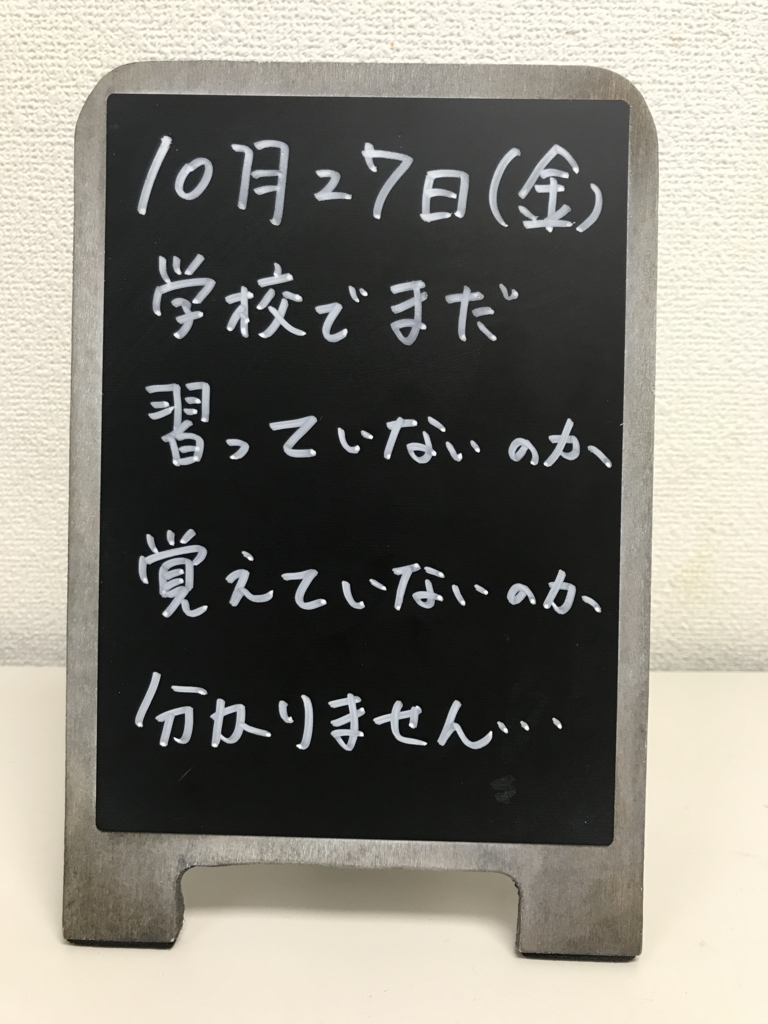 10月27日(金)
学校でまだ
習っていないのか、
覚えていないのか、
分かりません…